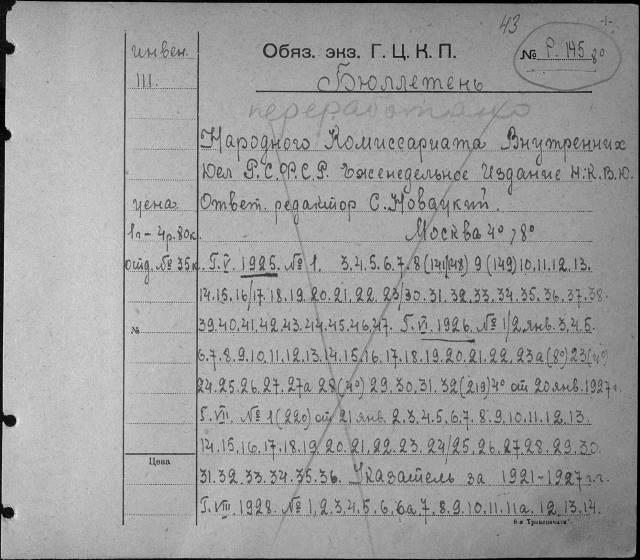 43
-1-
инвен. Обяз. экз. Г. Ц. К. П. № Р. 145 8°
III. Бюллетень
переработано
Народного Комиссариата Внутренних
Дел Р.С.Ф.С.Р. Еженедельное Издание Н.К.В.Ю.
цена Ответ. редактор С. Новацкий.
1 г - 4 р. 80 к. Москва 4°, 8°
отд. № 35 к. Г. V. 1925. № 1. 3.4.5.6.7.8 (141/148) 9 (149) 10.11.12.13.
14.15.16/17.18.19.20.21.22.23/30.31.32.33.34.35.36.37.38.
№ 39.40.41.42.43.44.45.46.47. Г. VI. 1926. № 1/2 янв. 3.4.5.
6.7.8.9.10.11.12.13.14.15.16.17.18.19.20.21.22.23а (8°) 23 (4°)
24.25.26.27.27а 28 (4°) 29.30.31.32 (219) 4° от 20 янв. 1927 г.
Г. VII. № 1 (220) от 21 янв. 2.3.4.5.6.7.8.9.10.11.12.13.
14.15.16.17.18.19.20.21.22.23.24/25.26.27.28.29.30.
Цена
31.32.33.34.35.36. Указатель за 1921-1927 г.г.
Г. VIII. 1928. № 1,2.3.4.5.6.6а 7.8.9.10.11.11а. 12.13.14.
6-я Транспечати.